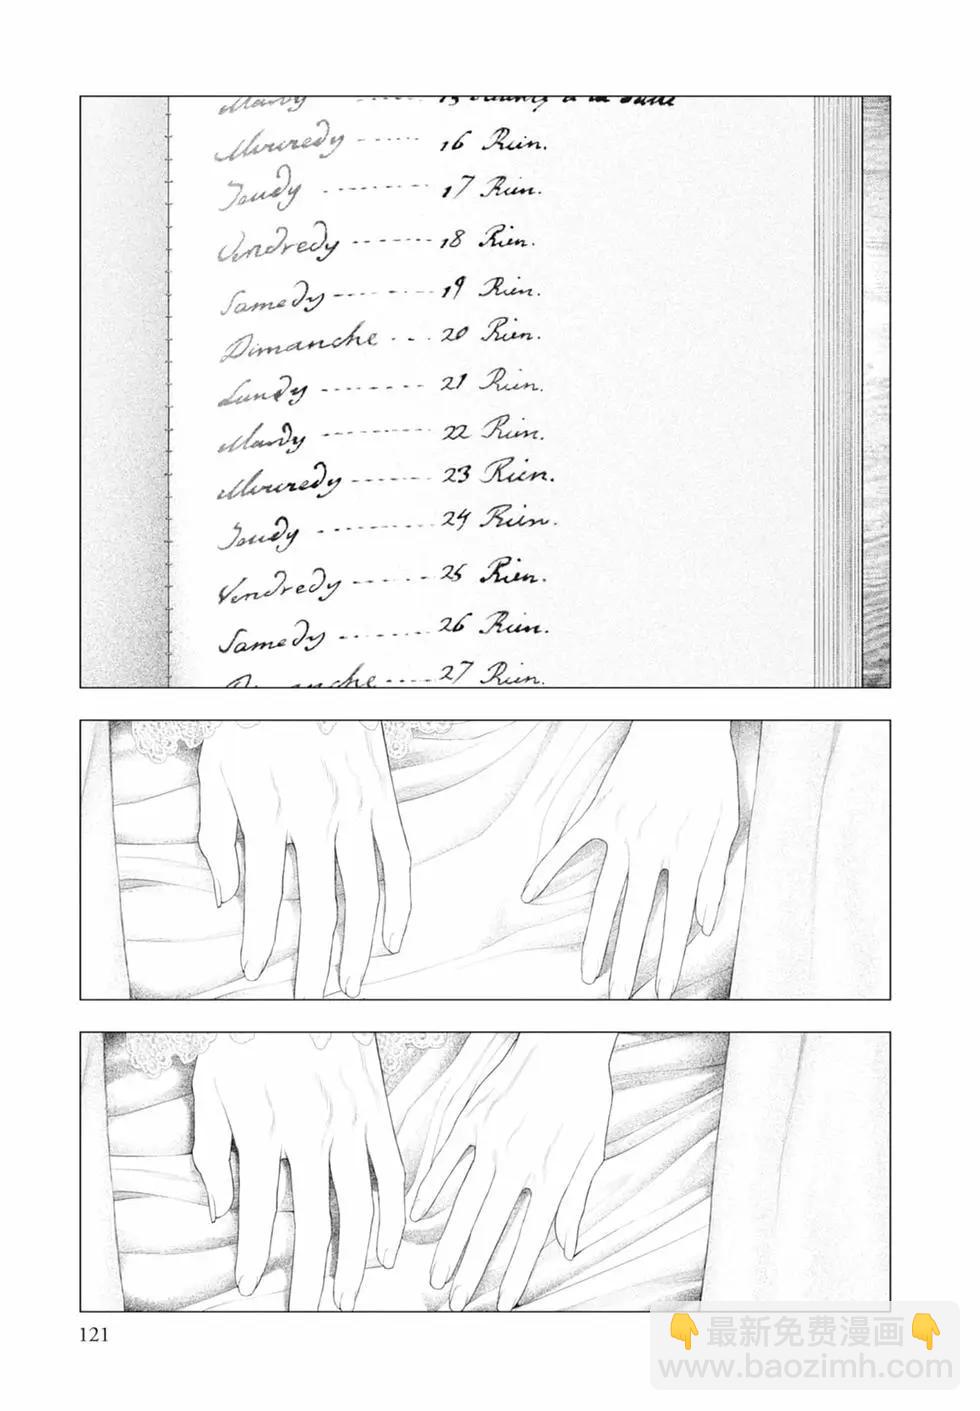 Mardy ---- 15
Mercredy ---- 16 Rien.
Jeudy ---- 17 Rien.
Vendredy ---- 18 Rien.
Samedy ---- 19 Rien.
Dimanche --- 20 Rien.
Lundy ---- 21 Rien.
Mardy ---- 22 Rien.
Mercredy ---- 23 Rien.
Jeudy ---- 24 Rien.
Vendredy ---- 25 Rien.
Samedy ---- 26 Rien.
Dimanche ---- 27 Rien.
121
👇最新免费漫画👇
www.baozimh.com